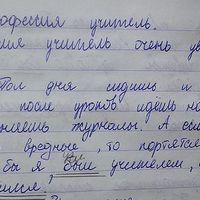 офессия учитель.
сия учитель очень ув
Пол дня сидишь и
после уроков идёшь на
няешь журналы. А есл
вредные, то портятся
бы я, был учителем,
ился.